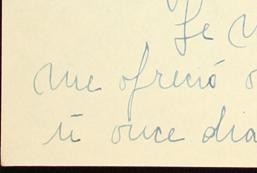 Le
me ofreció
ti once dia